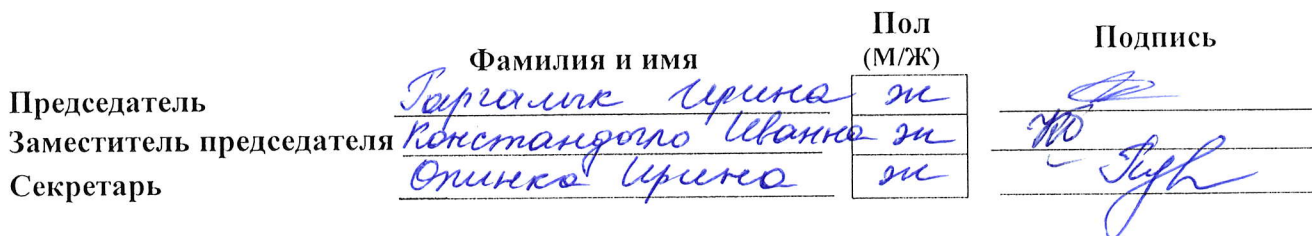 Фамилия и имя Пол (М/Ж) Подпись
Председатель Гаргалык Ирина ж
Заместитель председателя Констандогло Иванна ж
Секретарь Опинка Ирина ж